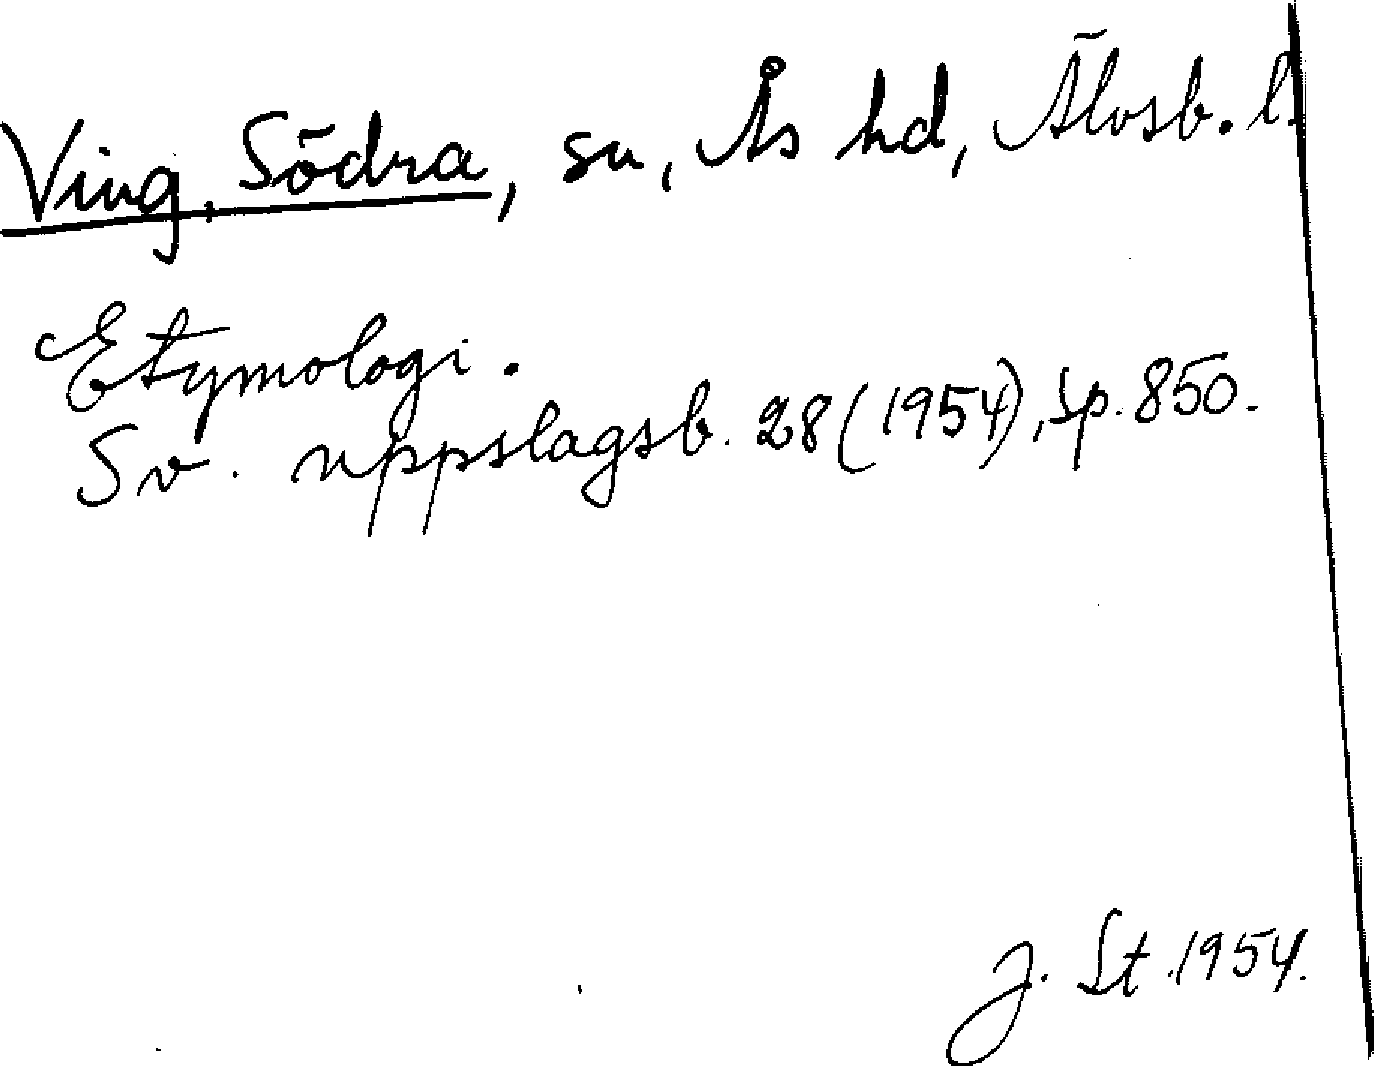 Ving, Södra, sn, Ås hd, Älvsb. l.
Etymologi.
Sv. uppslagsb. 28 (1954), sp. 850.
J. St. 1954.